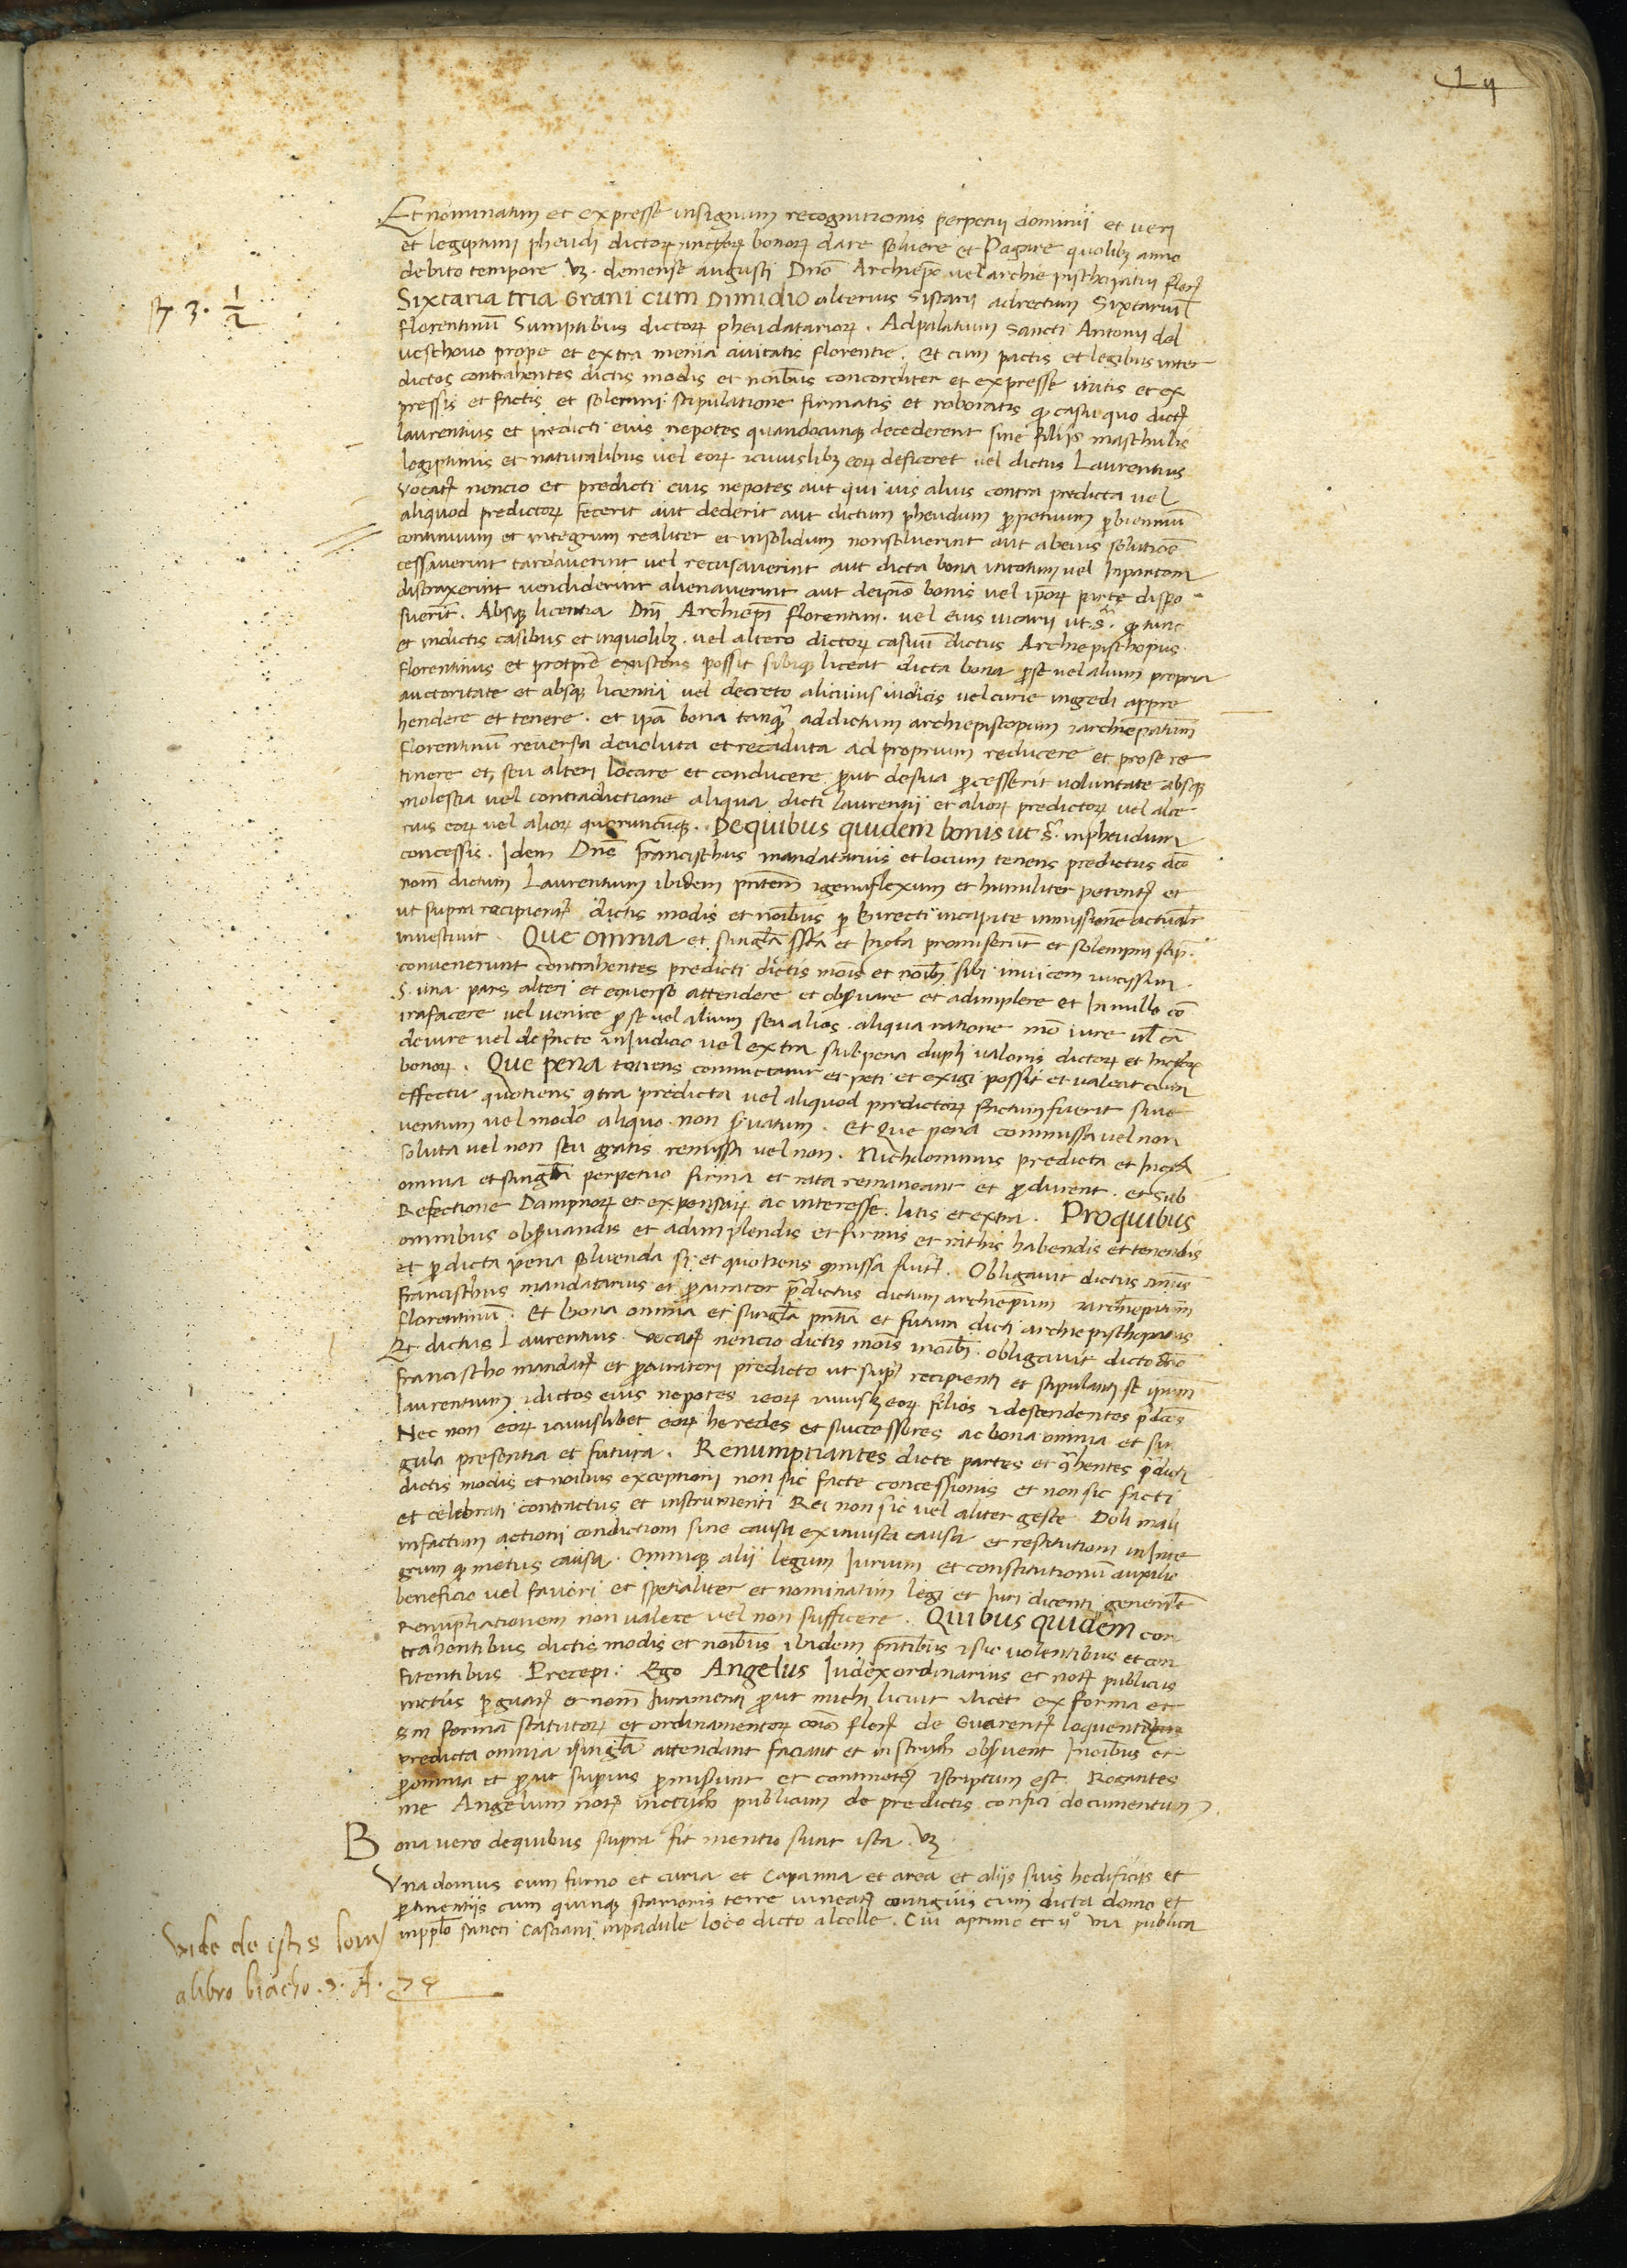 14
Et nominatim et expresse in signum recognitionis perpetui dominii et veri
et legiptimi pheudi dictoꝝ infꝝ bonoꝝ dare solvere et Pagare quolibꝫ anno
debito tempore vꝫ. demense augusti Dno Archiepo vel archiepischopatui floꝝ
Sixtaria tria Grani cum Dimidio alterius Sistarii adrectum Sixtariũ
florentinũ Sumptibus dictoꝝ pheudatarioꝝ. Ad palatium Sancti Antonii del
veschovo prope et extra menia civitatis florentie. Et cum pactis et legibus inter
dictos contrahentes dictis modis et noibus concorditer et expresse initis et ex
pressis et factis et solemni stipulatione firmatis et roboratis ꝙ casu quo dictꝰ
laurentius et predicti eius nepotes quandocunqꝫ decederent sine filiis maschulis
legiptimis et naturalibus vel eoꝝ ⁊cuiuslibꝫ eoꝝ deficeret vel dictus Laurentius
vocatꝰ nencio et predicti eius nepotes aut qui vis alius contra predicta vel
aliquod predictoꝝ fecerit aut dederit aut dictum pheudum ꝑpetuum ꝑ biennuũ
continuum et integrum realiter et insolidum non solverint aut ab eius solutioẽ
cessaverint tardaverint vel recusaverint aut dicta bona in totum vel In partem
distraxerint vendiderint alienaverint aut de ipsis bonis vel ipoꝝ parte dispo
suerit. Absqꝫ licentia Dni Archiepi florentini. vel eius vicarii ut .s. ꝙ tunc
et in dictis casibus et in quolibꝫ. vel altero dictoꝝ casuũ dictus Archiepischopus
florentinus et protpre existens possit sibiqꝫ liceat dicta bona ꝑ se vel alium propria
auctoritate et absqꝫ licentia vel decreto alicuius iudicis vel curie ingredi appre
hendere et tenere. et ipa bona tanqꝫ ad dictum archiepiscopum ⁊archiepatum
florentinũ reversa devoluta et recaduta ad proprium reducere et pro se re
tinere et, seu alteri locare et conducere ꝓut de sua ꝓcesserit voluntate absqꝫ
molestia vel contradictione aliqua dicti laurentii et alioꝝ predictoꝝ vel alte
rius eoꝝ vel alioꝝ quoruncunqꝫ. De quibus quidem bonis ut .s. in pheudum
concessis. Idem Dns Francischus mandatarius et locum tenens predictus dco
noie dictum Laurentium ibidem pntem ⁊genuflexum et humiliter petentꝫ et
ut supra recipientꝫ dictis modis et noibus ꝑ birecti in capite inmissione actualr
investivit. Que omnia et singla sta et Infta promiserũt et solempni stip.
convenerunt contrahentes predicti dictis mois et noibꝫ sibi invicem vicissim
.S. una pars alteri et econverso attendere et obẽvare et adimplere et In nullo cõ
trafacere vel venire ꝑ se vel alium seu alios. aliqua ratione mo iure vl cã
de iure vel de facto in Iudicio vel extra sub pena dupli valoris dictoꝝ et Infꝝ
bonoꝝ. Que pena totiens committatur et peti et exigi possit et valeat cum
effectu quotiens ꝯtra predicta vel aliquod predictoꝝ factum fuerit sive
ventum vel modo aliquo non ẽvatum. Et Que pena commissa vel non
soluta vel non seu gratis remissa vel non. Nichilominus predicta et Infta
omnia et singla perpetuo firma et rata remaneant et ꝑdurent. et sub
Refectione Dampnoꝝ et expensaꝝ ac interesse litis et extra. Pro quibus
omnibus obẽvandis et adimplendis et firmis et ratis habendis et tenendis
et ꝓ dicta pena solvenda si et quotiens ꝯmissa fuitꝫ. Obligavit dictus dnus
Francischus mandatarius et ꝓcurator ꝓdictus dictum archiepum ⁊archiepatum
florentinũ. Et bona omnia et singla pntia et futura dicti archiepischopatus
Et dictus Laurentius vocatꝰ nencio dictis mois ⁊noibꝫ. obligavit dicto dno
Francischo mandatꝰ et ꝓcuratori predicto ut supꝫ recipienti et stipulanti se ipsum
laurentium ⁊dictos eius nepotes ⁊eoꝝ ⁊cuiuslibꝫ eoꝝ filios ⁊descendentes ꝓdcos
Nec non eoꝝ ⁊cuiuslibet eoꝝ heredes et successores ac bona omnia et sin
gula presentia et futura. Renumptiantes dicte partes et ꝯhentes ꝓdicti
dictis modis et noibus exceptioni non sic facte concessionis et non sic facti
et celebrati contractus et instrumenti Rei non sic vel aliter geste Doli mali
in factum actioni condictioni sine causa ex iniusta causa et restitutioni in Inte
grum ꝙ metus causa. Omniqꝫ alii legum Iurium et constitutionũ auxilio
beneficio vel favori et spetialiter et nominatim legi et Iuri dicenti generalẽ
Renumptiationem non valere vel non sufficere. Quibus quidem con
trahentibus dictis modis et noibus ibidem pntibus ⁊sic volentibus et con
fitentibus Precepi. Ego Angelus Iudex ordinarius et notꝰ publicus
infrus ꝑ guarꝫ et nom Iuramenti ꝓut michi licuit ⁊licet ex forma et
sm formã statutoꝝ et ordinamentoꝝ cois floꝝ de Guarentꝫ loquentium
predicta omnia ⁊singla attendant faciant et in strum obẽvent In oibus et
ꝑ omnia et ꝓut superius ꝓmisẽunt et continetꝫ ⁊scriptum est. Rogantes
me Angelum notꝫ infrum publicum de predictis confici documentum.
Bona vero de quibus supra fit mentio sunt ista. vꝫ
Una domus cum furno et curia et Capanna et area et aliis suis hedificiis et
ꝑtinentiis cum quinqꝫ starioris terre vineatꝫ contiguis cum dicta domo et
in pplo sancti Casciani in padule loco dicto alcolle. Cui a primo et ijº via publica
st 3. 1/2
vide de istis bonis
a libro biacho .9. A. 74